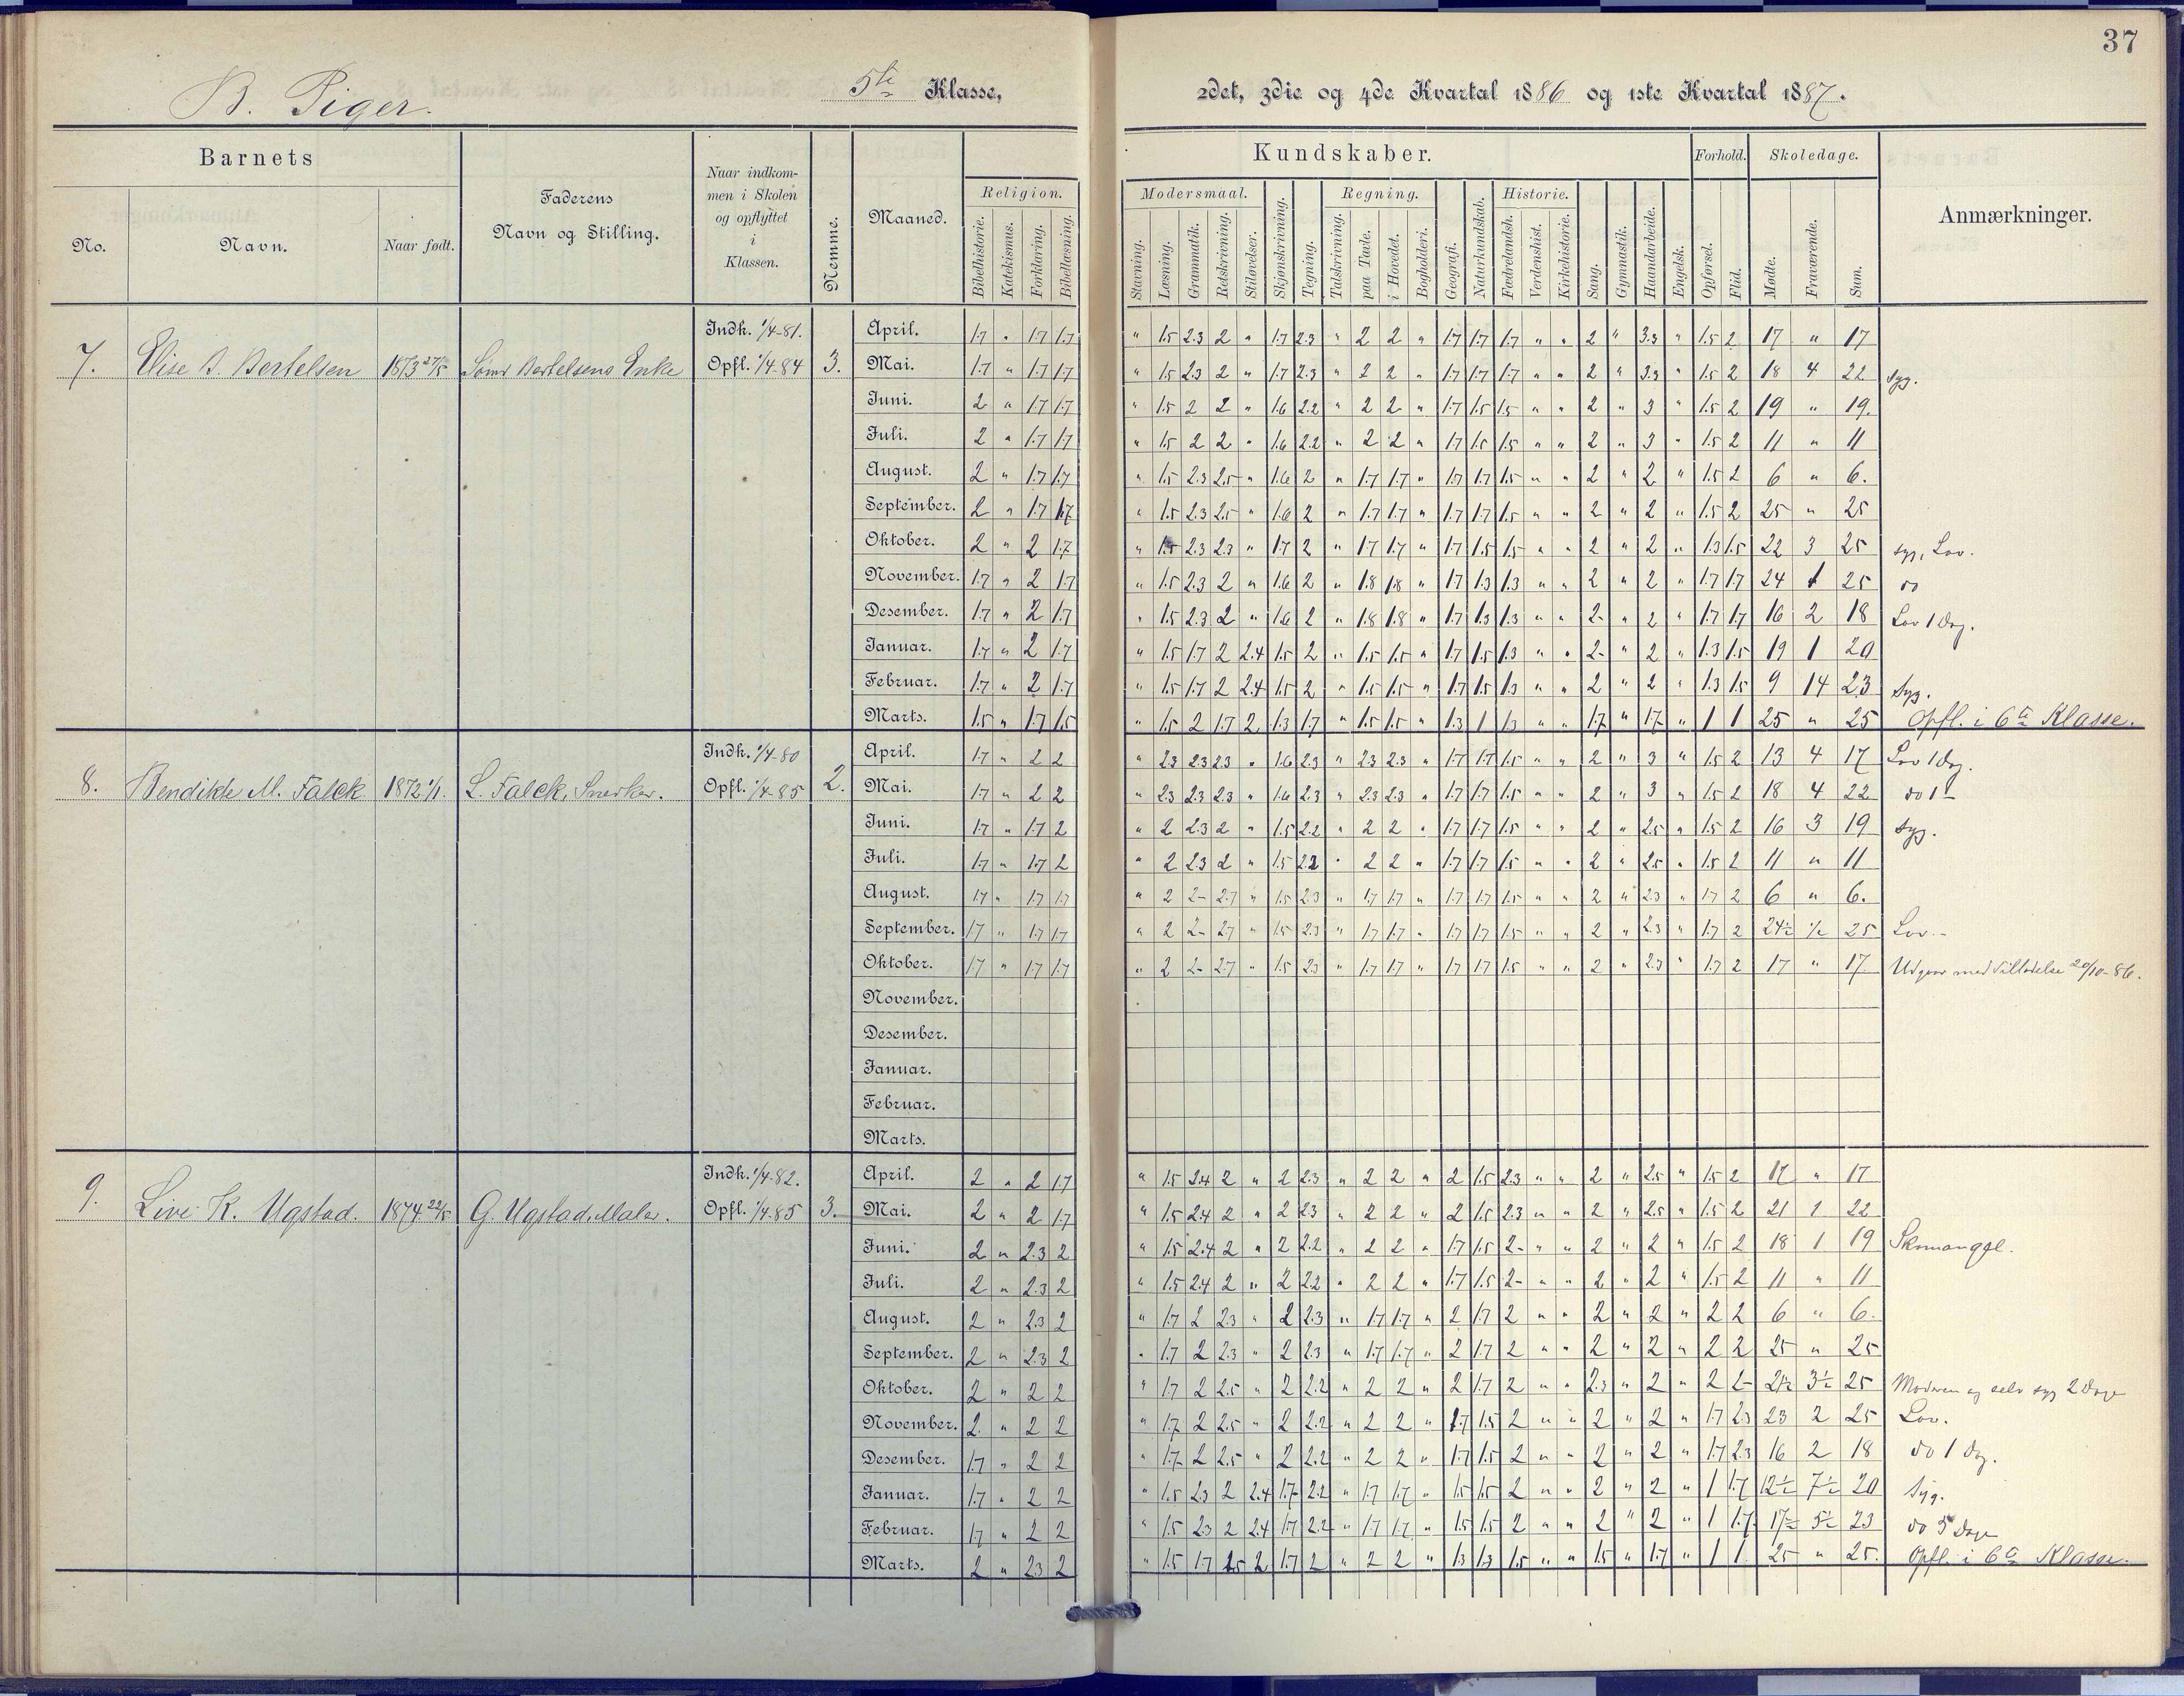 37
B. Piger. 5te Klasse, 2det, 3die og 4de Kvartal 1886 og 1ste Kvartal 1887.
Barnets Kundskaber. Forhold. Skoledage.
No. Navn. Naar født. Faderens Navn og Stilling. Naar indkommen i Skolen og opflyttet i Klassen. Nemme. Maaned. Religion. Modersmaal. Regning. Historie. Anmærkninger.
Bibelhistorie. Katekismus. Forklaring. Bibellæsning. Stavning. Læsning. Grammatik. Retskrivning. Stiløvelser. Skjønskrivning. Tegning. Talskrivning. paa Tavle. i Hovedet. Bogholderi. Geografi. Naturkundskab. Fædrelandsh. Verdenshist. Kirkehistorie. Sang. Gymnastik. Haandarbeide. Engelsk. Opførsel. Flid. Mødte. Fraværende. Sum.
Indk. 1/4-81. April. 1.7 " 1.7 1.7 " 1.5 2.3 2 " 1.7 2.3 " 2 2 " 1.7 1.7 1.7 " " 2 " 3.3 " 1.5 2 17 " 17
7. Elise B. Bertelsen 1873 Sømd Bertelsens Enke Opfl. 1/4-84 3. Mai. 1.7 " 1.7 1.7 " 1.5 2.3 2 " 1.7 2.3 " 2 2 " 1.7 1.7 1.7 " " 2 " 3.3 " 1.5 2 18 4 22 syg.
Juni. 2 " 1.7 1.7 " 1.5 2 2 " 1.6 2.2 " 2 2 " 1.7 1.5 1.5 " " 2 " 3 " 1.5 2 19 " 19.
Juli. 2 " 1.7 1.7 " 1.5 2 2 " 1.6 2.2 " 2 2 " 1.7 1.5 1.5 " " 2 " 3 " 1.5 2 11 " 11
August. 2 " 1.7 1.7 " 1.5 2.3 2.5 " 1.6 2 " 1.7 1.7 " 1.7 1.7 1.5 " " 2 " 2 " 1.5 2 6 " 6.
September. 2 " 1.7 1.7 " 1.5 2.3 2.5 " 1.6 2 " 1.7 1.7 " 1.7 1.7 1.5 " " 2 " 2 " 1.5 2 25 " 25
Oktober. 2 " 2 1.7 " 1.5 2.3 2.3 " 1.7 2 " 1.7 1.7 " 1.7 1.5 1.5 " " 2 " 2 " 1.3 1.5 22 3 25 syg, Lov.
November. 1.7 " 2 1.7 " 1.5 2.3 2 " 1.6 2 " 1.8 1.8 " 1.7 1.3 1.3 " " 2 " 2 " 1.7 1.7 24 1 25 do
Desember. 1.7 " 2 1.7 " 1.5 2.3 2 " 1.6 2 " 1.8 1.8 " 1.7 1.3 1.3 " " 2 " 2 " 1.7 1.7 16 2 18 Lov 1 Dag.
Januar. 1.7 " 2 1.7 " 1.5 1.7 2 2.4 1.5 2 " 1.5 1.5 " 1.7 1.5 1.3 " " 2 " 2 " 1.3 1.5 19 1 20
Februar. 1.7 " 2 1.7 " 1.5 1.7 2 2.4 1.5 2 " 1.5 1.5 " 1.7 1.5 1.3 " " 2 " 2 " 1.3 1.5 9 14 23 Syg.
Marts. 1.5 " 1.7 1.5 " 1.5 2 1.7 2 1.3 1.7 " 1.5 1.5 " 1.3 1 1.3 " " 1.7 " 1.7 " 1 1 25 " 25 Opfl. i 6te Klasse.
Indk. 1/4-80 April. 1.7 " 2 2 " 2.3 2.3 2.3 " 1.6 2.3 " 2.3 2.3 " 1.7 1.7 1.5 " " 2 " 3 " 1.5 2 13 4 17 Lov 1 Dag.
8. Bendikte M. Falck 1872 1/1. L. Falck, Snerker. Opfl. 1/4-85 2. Mai. 1.7 " 2 2 " 2.3 2.3 2.3 " 1.6 2.3 " 2.3 2.3 " 1.7 1.7 1.5 " " 2 " 3 " 1.5 2 18 4 22 do 1 -
Juni. 1.7 " 1.7 2 " 2 2.3 2 " 1.5 2.2 " 2 2 " 1.7 1.7 1.5 " " 2 " 2.5 " 1.5 2 16 3 19 syg.
Juli. 1.7 " 1.7 2 " 2 2.3 2 " 1.5 2.2 " 2 2 " 1.7 1.7 1.5 " " 2 " 2.5 " 1.5 2 11 " 11
August. 1.7 " 1.7 1.7 " 2 2- 2.7 " 1.5 2.3 " 1.7 1.7 " 1.7 1.7 1.5 " " 2 " 2.3 " 1.7 2 6 " 6.
September. 1.7 " 1.7 1.7 " 2 2- 2.7 " 1.5 2.3 " 1.7 1.7 " 1.7 1.7 1.5 " " 2 " 2.3 " 1.7 2 24½ ½ 25 Lov.-
Oktober. 1.7 " 1.7 1.7 " 2 2- 2.7 " 1.5 2.3 " 1.7 1.7 " 1.7 1.7 1.5 " " 2 " 2.3 " 1.7 2 17 " 17. Udgaar med Tilladelse 20/10-86.
November.
Desember.
Januar.
Februar.
Marts.
Indk. 1/4-82. April. 2 " 2 1.7 " 1.5 2.4 2 " 2 2.3 " 2 2 " 2 1.5 2.3 " " 2 " 2.5 " 1.5 2 17 " 17
9. Live K. Ugstad. 1874 22/5 G. Ugstad, Maler. Opfl. 1/4-85 3. Mai. 2 " 2 1.7 " 1.5 2.4 2 " 2 2.3 " 2 2 " 2 1.5 2.3 " " 2 " 2.5 " 1.5 2 21 1 22
Juni. 2 " 2.3 2 " 1.5 2.4 2 " 2 2.2 " 2 2 " 1.7 1.5 2- " " 2 " 2 " 1.5 2 18 1 19 Skomangel.
Juli. 2 " 2.3 2 " 1.5 2.4 2 " 2 2.2 " 2 2 " 1.7 1.5 2- " " 2 " 2 " 1.5 2 11 " 11
August. 2 " 2.3 2 " 1.7 2 2.3 " 2 2.3 " 1.7 1.7 " 2 1.7 2 " " 2 " 2 " 2 2 6 " 6.
September. 2 " 2.3 2 " 1.7 2 2.3 " 2 2.3 " 1.7 1.7 " 2 1.7 2 " " 2 " 2 " 2 2 25 " 25
Oktober. 2 " 2 2 " 1.7 2 2.5 " 2 2.2 " 2 2 " 2 1.7 2 " " 2.3 " 2 " 2 2- 21½ 3½ 25 Moderen og selv syg 2 Dage
November. 2 " 2 2 " 1.7 2 2.5 " 2 2.2 " 2 2 " 1.7 1.5 2 " " 2 " 2 " 1.7 2.3 23 2 25 Lov.
Desember. 1.7 " 2 2 " 1.7 2 2.5 " 2 2.2 " 2 2 " 1.7 1.5 2 " " 2 " 2 " 1.7 2.3 16 2 18 do 1 Dag.
Januar. 1.7 " 2 2 " 1.5 2.3 2 2.4 1.7 2.2 " 1.7 1.7 " 1.5 1.5 2 " " 2 " 2 " 1 1.7 12½ 7½ 20 Syg.
Februar. 1.7 " 2 2 " 1.5 2.3 2 2.4 1.7 2.2 " 1.7 1.7 " 1.5 1.5 2 " " 2 " 2 " 1 1.7 17½ 5½ 23 do 5 Dage
Marts. 2 " 2.3 2 " 1.5 1.7 2.5 2 1.7 2 " 2 2 " 1.3 1.3 1.5 " " 1.5 " 1.7 " 1 1 25 " 25. Opfl. i 6te Klasse.